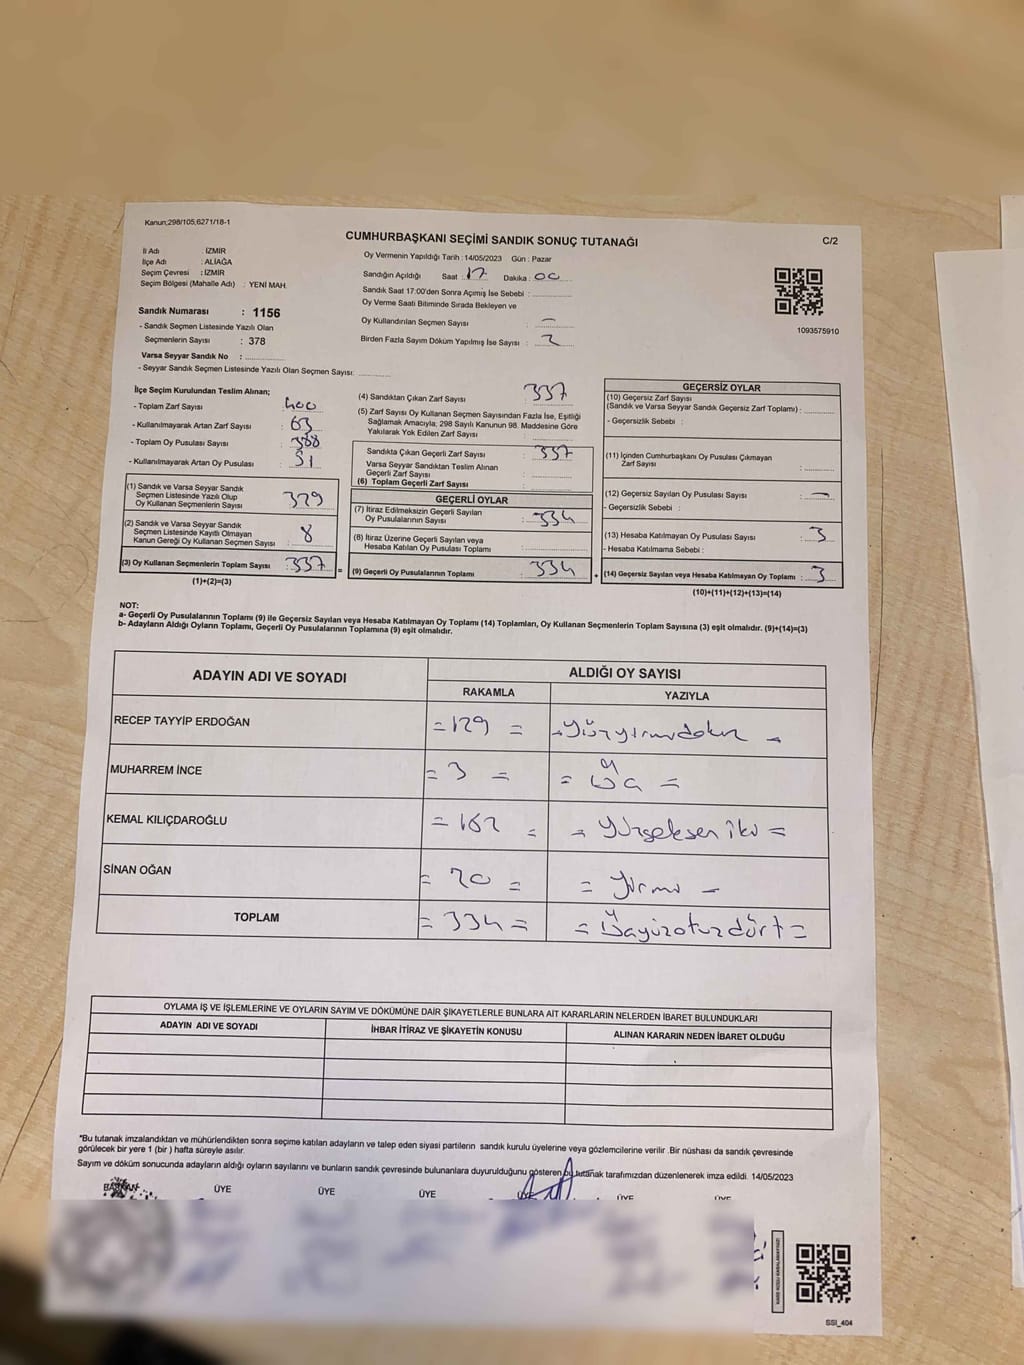 Kanun;298/105;6271/18-1
CUMHURBAŞKANI SEÇİMİ SANDIK SONUÇ TUTANAĞI
C/2
İli Adı : İZMİR
İlçe Adı : ALİAĞA
Seçim Çevresi : İZMİR
Seçim Bölgesi (Mahalle Adı) : YENİ MAH.
Oy Vermenin Yapıldığı Tarih : 14/05/2023 Gün : Pazar
Sandığın Açıldığı Saat : 17 Dakika : 00
Sandık Saat 17:00'den Sonra Açımış İse Sebebi :
Oy Verme Saati Bitiminde Sırada Bekleyen ve
Oy Kullandırılan Seçmen Sayısı : -
Birden Fazla Sayım Döküm Yapılmış İse Sayısı : 2
1093575910
Sandık Numarası : 1156
- Sandık Seçmen Listesinde Yazılı Olan
Seçmenlerin Sayısı : 378
Varsa Seyyar Sandık No :
- Seyyar Sandık Seçmen Listesinde Yazılı Olan Seçmen Sayısı:
İlçe Seçim Kurulundan Teslim Alınan;
- Toplam Zarf Sayısı : 400
- Kullanılmayarak Artan Zarf Sayısı : 63
- Toplam Oy Pusulası Sayısı : 388
- Kullanılmayarak Artan Oy Pusulası : 51
(1) Sandık ve Varsa Seyyar Sandık
Seçmen Listesinde Yazılı Olup
Oy Kullanan Seçmenlerin Sayısı : 329
(2) Sandık ve Varsa Seyyar Sandık
Seçmen Listesinde Kayıtlı Olmayan
Kanun Gereği Oy Kullanan Seçmen Sayısı : 8
(3) Oy Kullanan Seçmenlerin Toplam Sayısı : 337
(1)+(2)=(3)
(4) Sandıktan Çıkan Zarf Sayısı : 337
(5) Zarf Sayısı Oy Kullanan Seçmen Sayısından Fazla İse, Eşitliği
Sağlamak Amacıyla, 298 Sayılı Kanunun 98. Maddesine Göre
Yakılarak Yok Edilen Zarf Sayısı :
Sandıkta Çıkan Geçerli Zarf Sayısı : 337
Varsa Seyyar Sandıktan Teslim Alınan
Geçerli Zarf Sayısı :
(6) Toplam Geçerli Zarf Sayısı :
GEÇERLİ OYLAR
(7) İtiraz Edilmeksizin Geçerli Sayılan
Oy Pusulalarının Sayısı : 334
(8) İtiraz Üzerine Geçerli Sayılan veya
Hesaba Katılan Oy Pusulası Toplamı :
= (9) Geçerli Oy Pusulalarının Toplamı : 334
GEÇERSİZ OYLAR
(10) Geçersiz Zarf Sayısı
(Sandık ve Varsa Seyyar Sandık Geçersiz Zarf Toplamı) :
- Geçersizlik Sebebi :
(11) İçinden Cumhurbaşkanı Oy Pusulası Çıkmayan
Zarf Sayısı :
(12) Geçersiz Sayılan Oy Pusulası Sayısı : -
- Geçersizlik Sebebi :
(13) Hesaba Katılmayan Oy Pusulası Sayısı : 3
- Hesaba Katılmama Sebebi :
+ (14) Geçersiz Sayılan veya Hesaba Katılmayan Oy Toplamı : 3
(10)+(11)+(12)+(13)=(14)
NOT:
a- Geçerli Oy Pusulalarının Toplamı (9) ile Geçersiz Sayılan veya Hesaba Katılmayan Oy Toplamı (14) Toplamları, Oy Kullanan Seçmenlerin Toplam Sayısına (3) eşit olmalıdır. (9)+(14)=(3)
b- Adayların Aldığı Oyların Toplamı, Geçerli Oy Pusulalarının Toplamına (9) eşit olmalıdır.
ADAYIN ADI VE SOYADI
ALDIĞI OY SAYISI
RAKAMLA YAZIYLA
RECEP TAYYİP ERDOĞAN = 129 = - Yüzyirmidokuz -
MUHARREM İNCE = 3 = = Üç =
KEMAL KILIÇDAROĞLU = 182 = = Yüzseksen iki =
SİNAN OĞAN = 20 = = Yirmi -
TOPLAM = 334 = = Üçyüzotuzdört =
OYLAMA İŞ VE İŞLEMLERİNE VE OYLARIN SAYIM VE DÖKÜMÜNE DAİR ŞİKAYETLERLE BUNLARA AİT KARARLARIN NELERDEN İBARET BULUNDUKLARI
ADAYIN ADI VE SOYADI İHBAR İTİRAZ VE ŞİKAYETİN KONUSU ALINAN KARARIN NEDEN İBARET OLDUĞU
*Bu tutanak imzalandıktan ve mühürlendikten sonra seçime katılan adayların ve talep eden siyasi partilerin sandık kurulu üyelerine veya gözlemcilerine verilir .Bir nüshası da sandık çevresinde
görülecek bir yere 1 (bir ) hafta süreyle asılır.
Sayım ve döküm sonucunda adayların aldığı oyların sayılarını ve bunların sandık çevresinde bulunanlara duyurulduğunu gösteren bu tutanak tarafımızdan düzenlenerek imza edildi. 14/05/2023
BAŞKAN ÜYE ÜYE ÜYE ÜYE ÜYE ÜYE
SSI_404